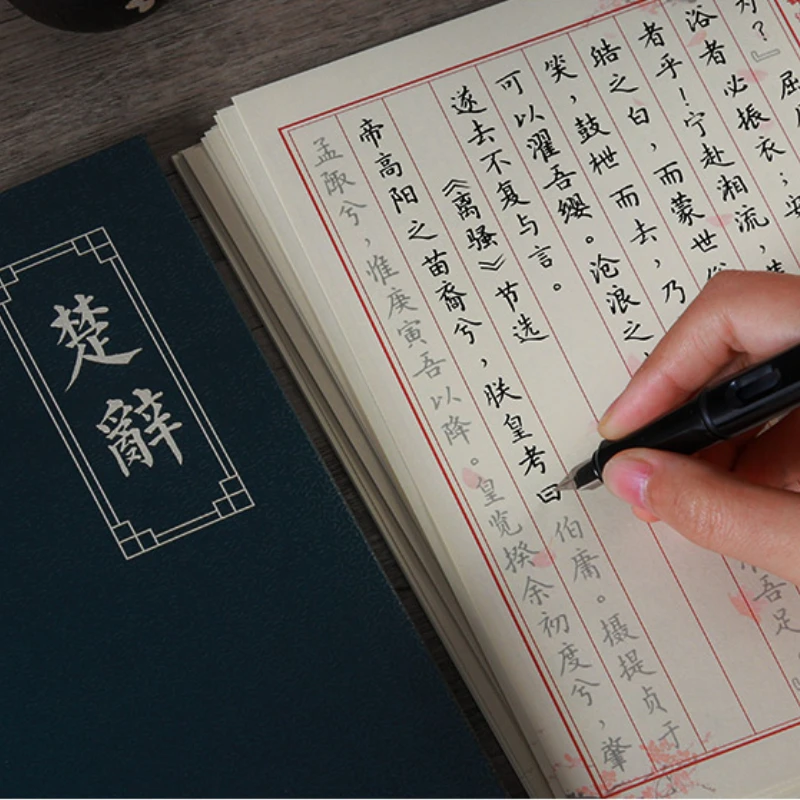 为？『屈
浴者必振衣；安
者乎！宁赴湘流，
皓之白，而蒙世俗
笑，鼓枻而去，乃
可以濯吾缨。沧浪之
吾足
遂去不复与言。
《离骚》节选
帝高阳之苗裔兮，朕皇考曰伯庸。摄提贞于
孟陬兮，惟庚寅吾以降。皇览揆余初度兮，肇
楚辭